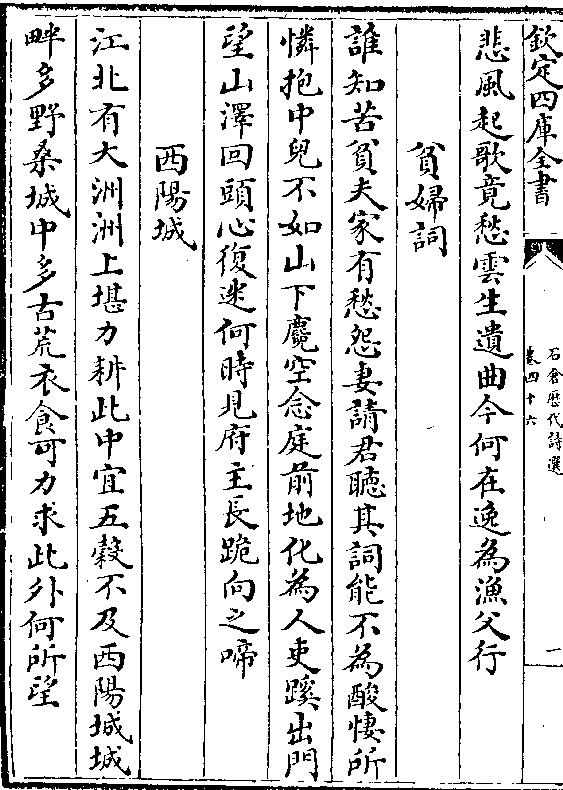 欽定四庫全書
石倉歷代詩選
卷四十六
一
悲風起歌竟愁雲生遺曲今何在逸為漁父行
貧婦詞
誰知苦貧夫家有愁怨妻請君聽其詞能不為酸悽所
憐抱中兒不如山下麑空念庭前地化為人吏蹊出門
望山澤回頭心復迷何時見府主長跪向之啼
西陽城
江北有大洲洲上堪力耕此中宜五穀不及西陽城城
畔多野桑城中多古荒衣食可力求此外何所望